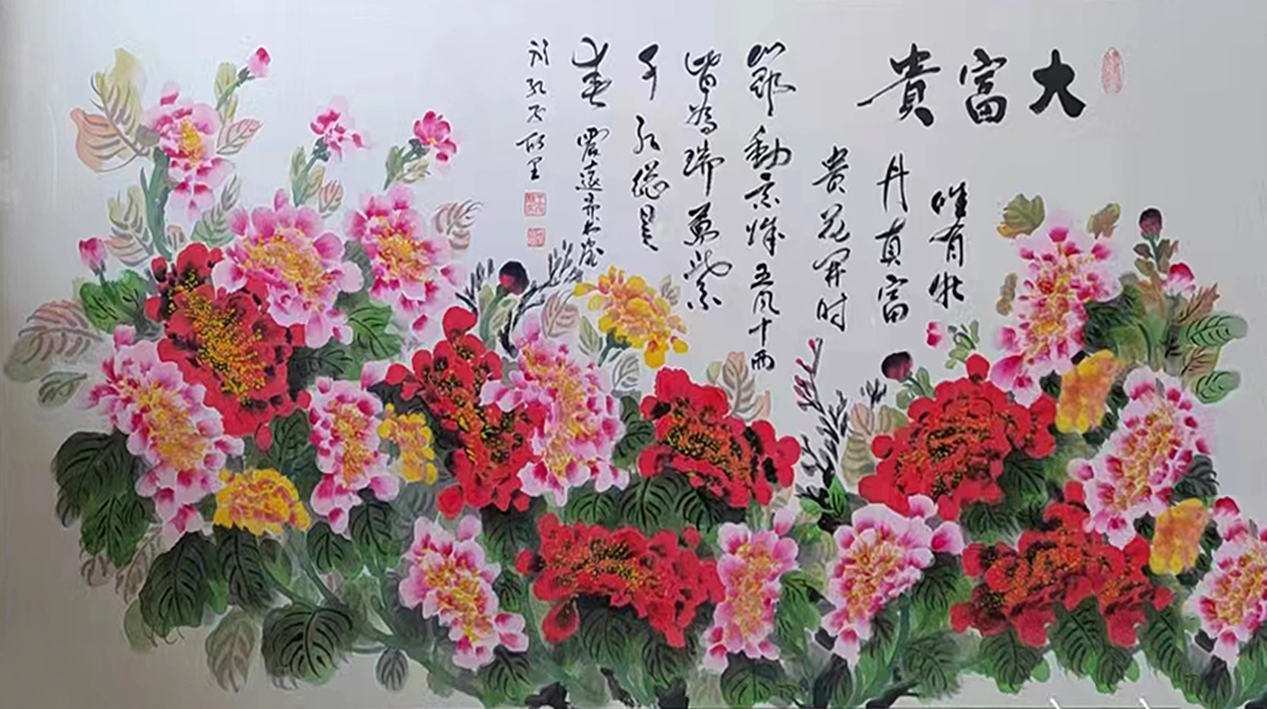 大富貴
唯有牡
丹真富
贵花开时
節動京城五风十雨
皆為瑞萬紫
千红總是
春